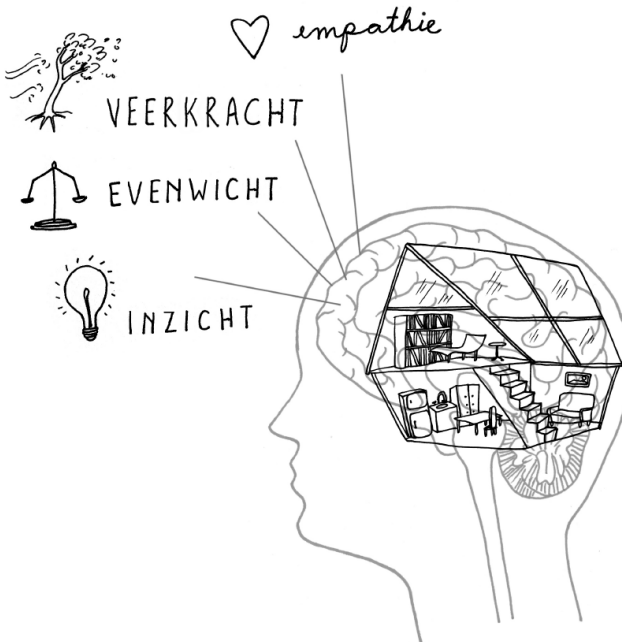 empathie
VEERKRACHT
EVENWICHT
INZICHT